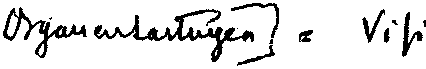 Organentartungen] = Visi